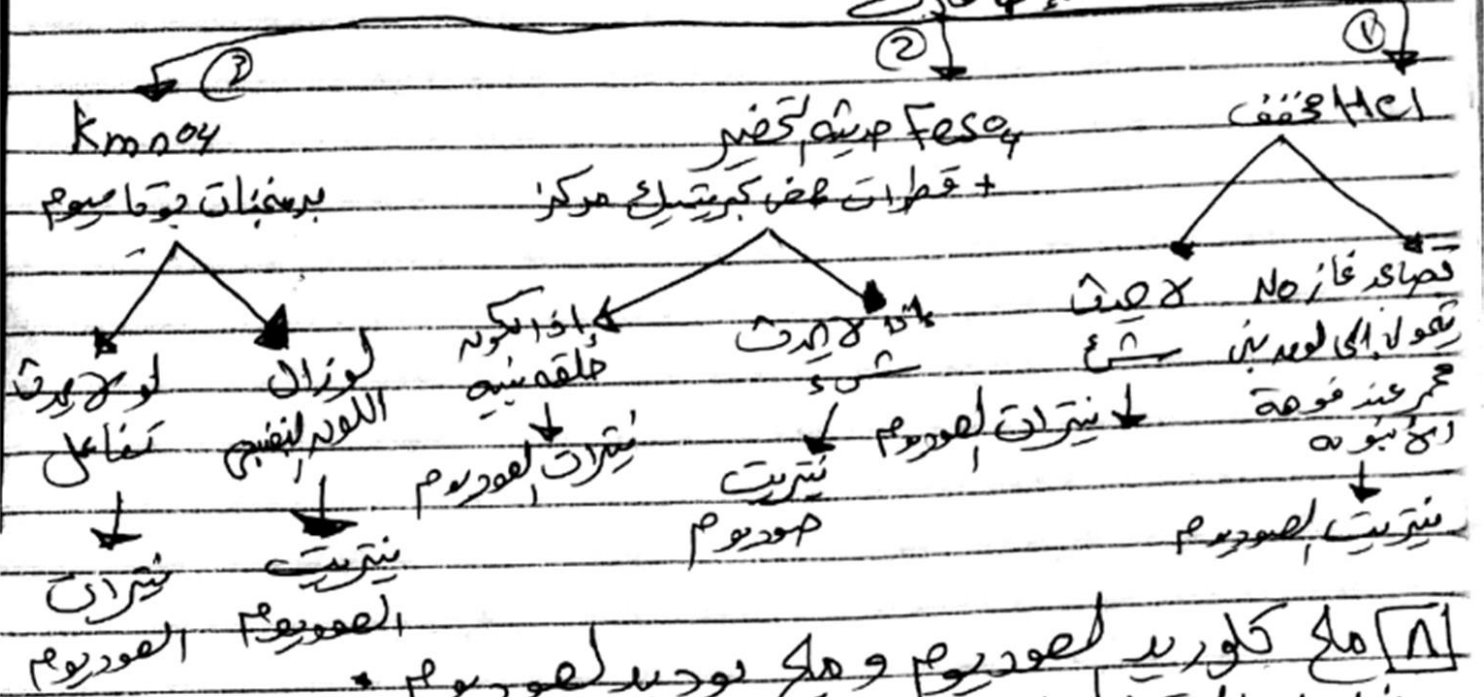 ①
HCl مخفف
تصاعد غاز NO
يتحول إلى لون بني
محمر عند فوهة
الأنبوبه
نيتريت الصوديوم
لا يحدث
شئ
نيترات الصوديوم
②
FeSO4 حديثه التحضير
+ قطرات حمض كبريتيك مركز
لا يحدث
شىء
نيتريت
صوديوم
إذا تكونه
حلقه بنيه
نيترات الصوديوم
③
Kmno4
برمنجنات بوتاسيوم
لو زال
اللون البنفسجي
نيتريت
الصوديوم
لو لا يحدث
تفاعل
نيترات
الصوديوم
٨ ملح كلوريد الصوديوم وملح يوديد الصوديوم